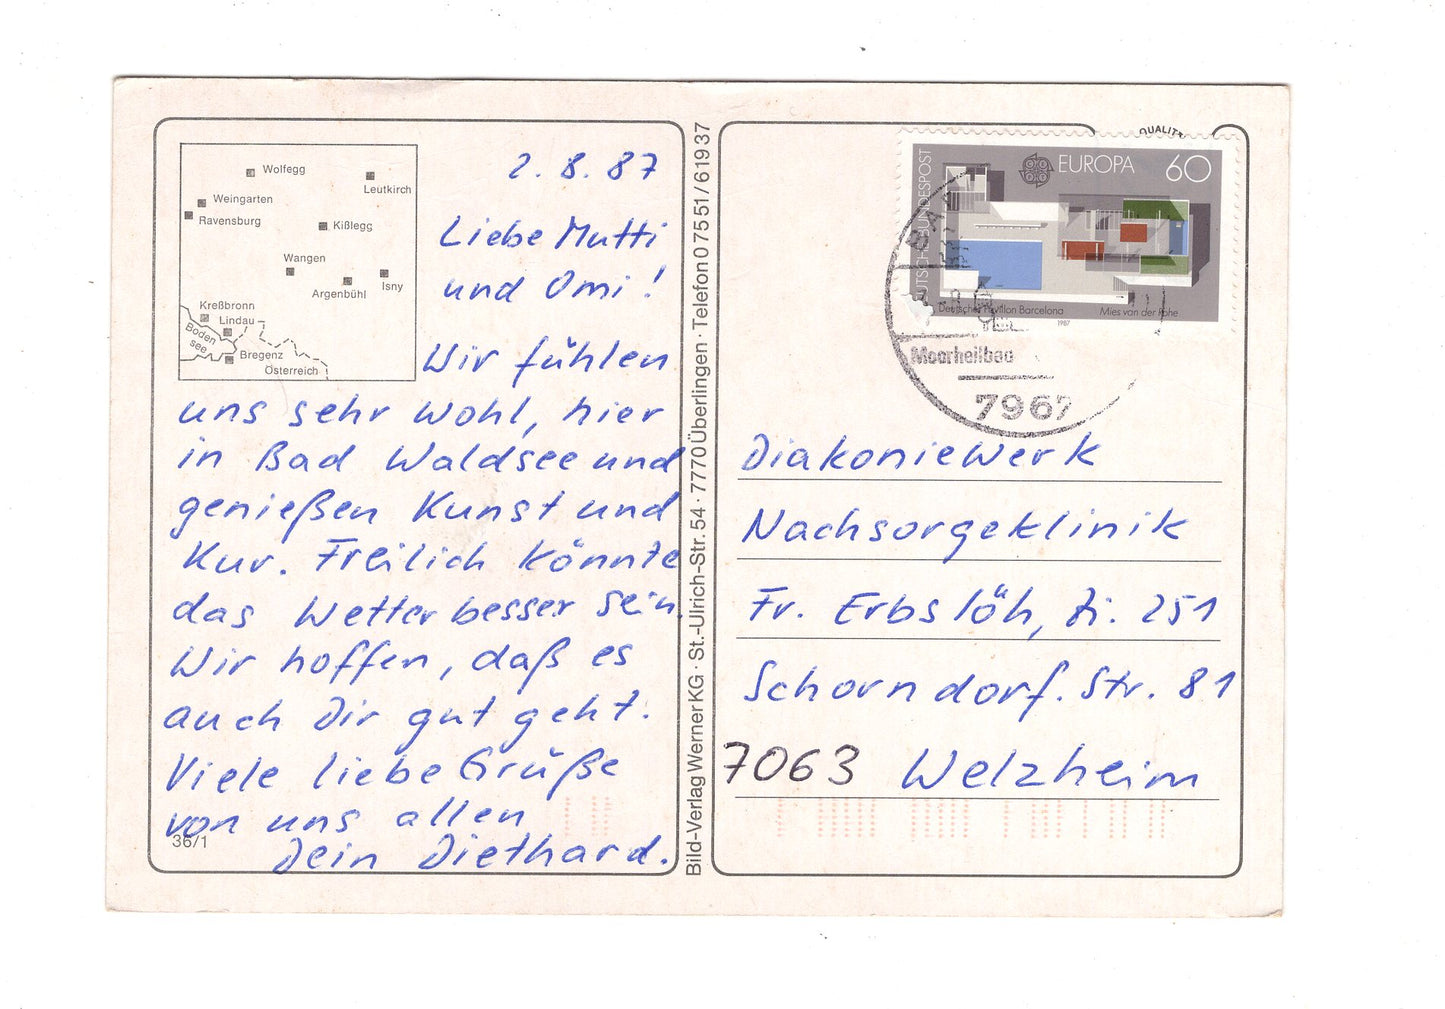 Wolfegg
Leutkirch
Weingarten
Ravensburg
Kißlegg
Wangen
Isny
Argenbühl
Kreßbronn
Lindau
Boden
see
Bregenz
Österreich
2. 8. 87
Liebe Mutti
und Omi!
Wir fühlen
uns sehr wohl, hier
in Bad Waldsee und
genießen Kunst und
Kur. Freilich könnte
das Wetter besser sein.
Wir hoffen, daß es
auch Dir gut geht.
Viele liebe Grüße
von uns allen
36/1
Dein Diethard.
Bild-Verlag Werner KG · St.-Ulrich-Str. 54 · 7770 Überlingen · Telefon 07551/61937
QUALIT
DEUTSCHE BUNDESPOST
EUROPA 60
Deutscher Pavillon Barcelona Mies van der Rohe
1987
BAD
Moorheilbad
7967
Diakoniewerk
Nachsorgeklinik
Fr. Erbslöh, Zi. 251
Schorndorf. Str. 81
7063 Welzheim